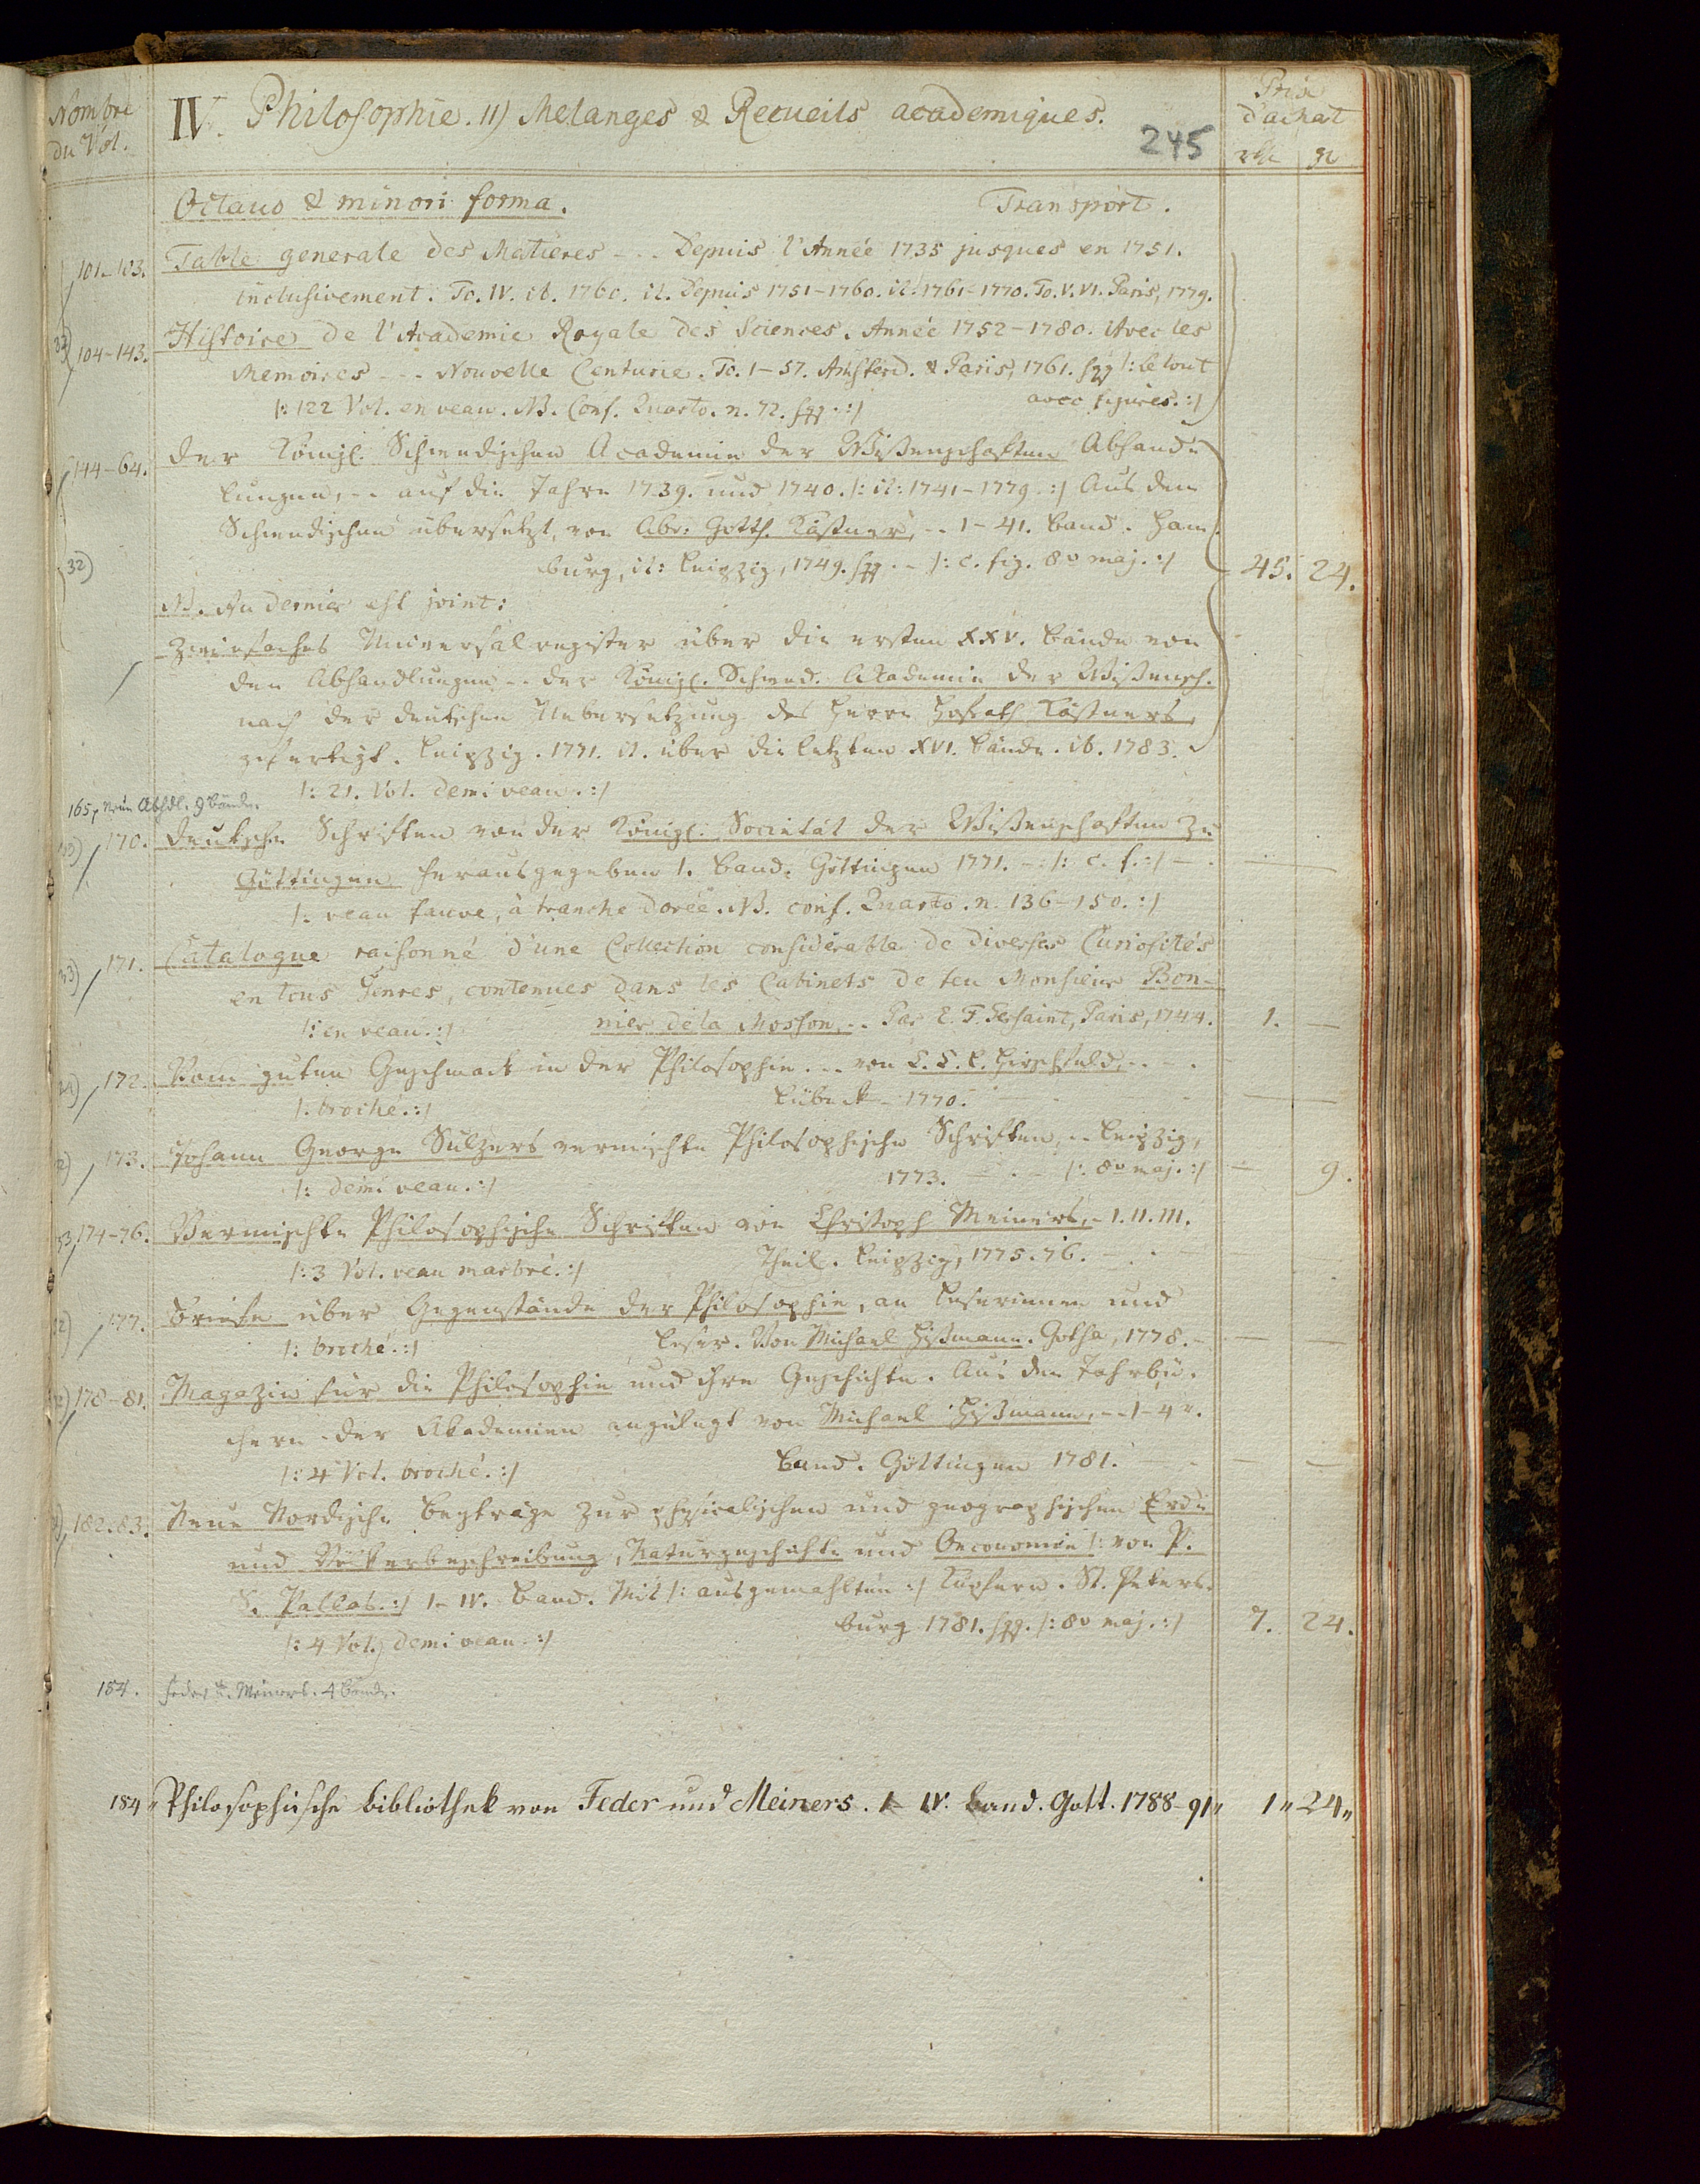 Nombre
du Vol.
IV. Philosophie. 11) Melanges & Recueils academiques.
245
Prix
d'achat
rth gr
Octavo & minori forma. Transport.
101-103. Table generale des Matieres - - - Depuis l'Année 1735 jusques en 1751.
inclusivement. To. IV. ib. 1760. it. Depuis 1751-1760. it. 1761-1770. To. V. VI. Paris, 1779.
32) 104-143. Histoire de l'Academie Royale des Sciences. Année 1752-1780. Avec les
Memoires - - - Nouvelle Centurie. To. 1-57. Amsterd. & Paris, 1761. sqq |: le tout
|: 122 Vol. en veau. NB. Conf. Quarto. n. 72. sqq. :| avec figures. :|
144-64. Der Königl. Schwedischen Academie der Wißenschaften Abhand-
lungen, - - auf die Jahre 1739. und 1740. |: it: 1741-1779. :| Aus dem
Schwedischen übersetzt, von Abr: Gotth. Kästner, - - 1-41. Band. Ham-
32) burg, it: Leipzig, 1749. sqq - - |: c. fig. 8vo maj. :| 45. 24.
NB. Au dernier est joint:
Zweifaches Universalregister über die ersten XXV. Bände von
den Abhandlungen - - der Königl. Schwed. Akademie der Wißensch.
nach der deutschen Uebersetzung des Herrn Hofrath Kästners,
gefertigt. Leipzig. 1771. it. über die letzten XVI. Bände. ib. 1783.
|: 21. Vol. demi veau. :|
165, Neue Abhdl. 9 Bände.
170. Deutsche Schriften von der Königl. Societät der Wißenschaften zu
Göttingen herausgegeben 1. Band. Göttingen 1771. - |: c. f. :| - . — —
|: veau fauve, à tranche dorée. NB. conf. Quarto. n. 136-150. :|
33) 171. Catalogue raisonné d'une Collection considerable de diverses Curiosités
en tous Genres, contenues dans les Cabinets de feu Monsieur Bon-
|: en veau. :| nier de la Mosson, - - Par E. F. Gersaint, Paris, 1744. 1. —
172. Vom guten Geschmack in der Philosophie - - - von C. C. L. Hirschfeld, - - - .
|: broché. :| Lübeck - 1770. — —
173. Johann George Sulzers vermischte Philosophische Schriften, - - Leipzig,
|: demi veau. :| 1773. - . - |: 8vo maj. :| — 9.
174-76. Vermischte Philosophische Schriften von Christoph Meiners, - I. II. III.
|: 3 Vol. veau marbré. :| Theil. Leipzig, 1775. 76. - . -
177. Briefe über Gegenstände der Philosophie, an Leserinnen und
|: broché. :| Leser. Von Michael Hißmann. Gotha, 1778. - — —
178-81. Magazin für die Philosophie und ihre Geschichte. Aus den Jahrbü-
chern der Akademien angelegt von Michael Hißmann, - - 1-4r.
|: 4 Vol. broché. :| Band. Göttingen 1781. — —
182. 83. Neue Nordische Beyträge zur physicalischen und geographischen Erd-
und Völkerbeschreibung, Naturgeschichte und Oeconomie |: von P.
S. Pallas. :| I-IV. Band. Mit |: ausgemahlten :| Kupfern. St. Peters-
|: 4 Vol. demi veau. :| burg 1781. sqq. |: 8vo maj. :| 7. 24.
184. Feder u. Meiners. 4 Bände.
184" Philosophische Bibliothek von Feder und Meiners. I-IV. Band. Gott. 1788-91" 1" 24"